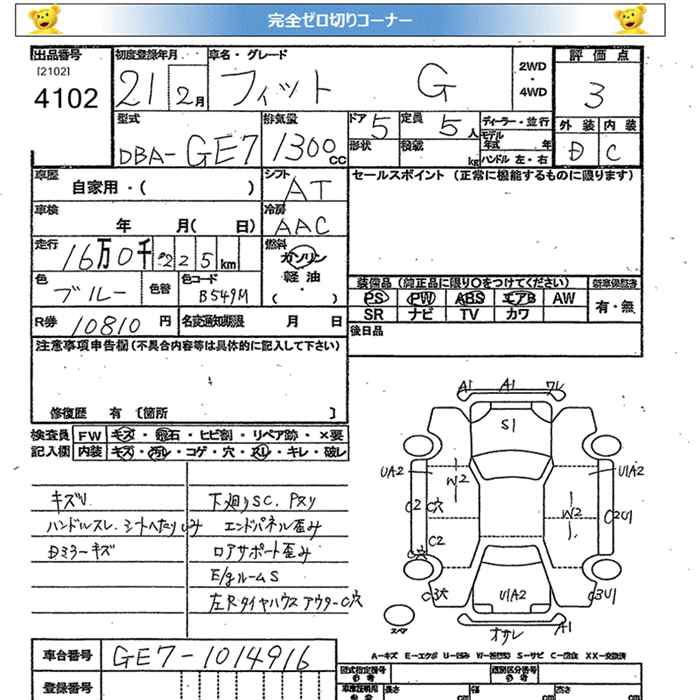 完全ゼロ切りコーナー
出品番号 初度登録年月 車名・グレード 評価点
[2102] 2WD
4102 21 2月 フィット G ・ 3
4WD
型式 排気量 ドア 定員 ディーラー・並行 外装 内装
DBA-GE7 1300cc 5 5人 モデル年式 年 D C
形状 積載 kg ハンドル 左・右
車歴 シフト セールスポイント (正常に機能するものに限ります)
自家用・( ) AT
車検 冷房
年 月( 日) AAC
走行 燃料
16万0千225km ガソリン
色 色替 色コード 軽油
ブルー B549M ( ・ )
装備品 (純正品に限り○をつけてください) 新車保証書
PS PW ABS エアB AW 有・無
SR ナビ TV カワ
R券 10810円 名変通知期限 月 日
後日品
注意事項申告欄 (不具合内容等は具体的に記入して下さい)
修復歴 有 〔箇所 〕
検査員 FW キズ・飛石・ヒビ割・リペア跡・×要
記入欄 内装 キズ・汚レ・コゲ・穴・スレ・キレ・破レ
キズU 下廻りSC、Pスリ
ハンドルスレ、シートヘタリ シミ エンドパネル歪み
Dミラーキズ ロアサポート歪み
E/gルームS
左Rタイヤハウスアウター C穴
A1 A1 ワレ
S1
UA2 W2 W2 U1A2
C2 C穴 C2U1
C2
C穴
C3穴 U1A2 C3U1
オサレ A1
スペア
A-キズ E-エクボ U-凹み W-補修跡 S-サビ C-腐食 XX-交換済
車台番号 GE7-1014916
登録番号
型式指定番号 類別区分番号
長さ cm 幅 cm 高さ cm